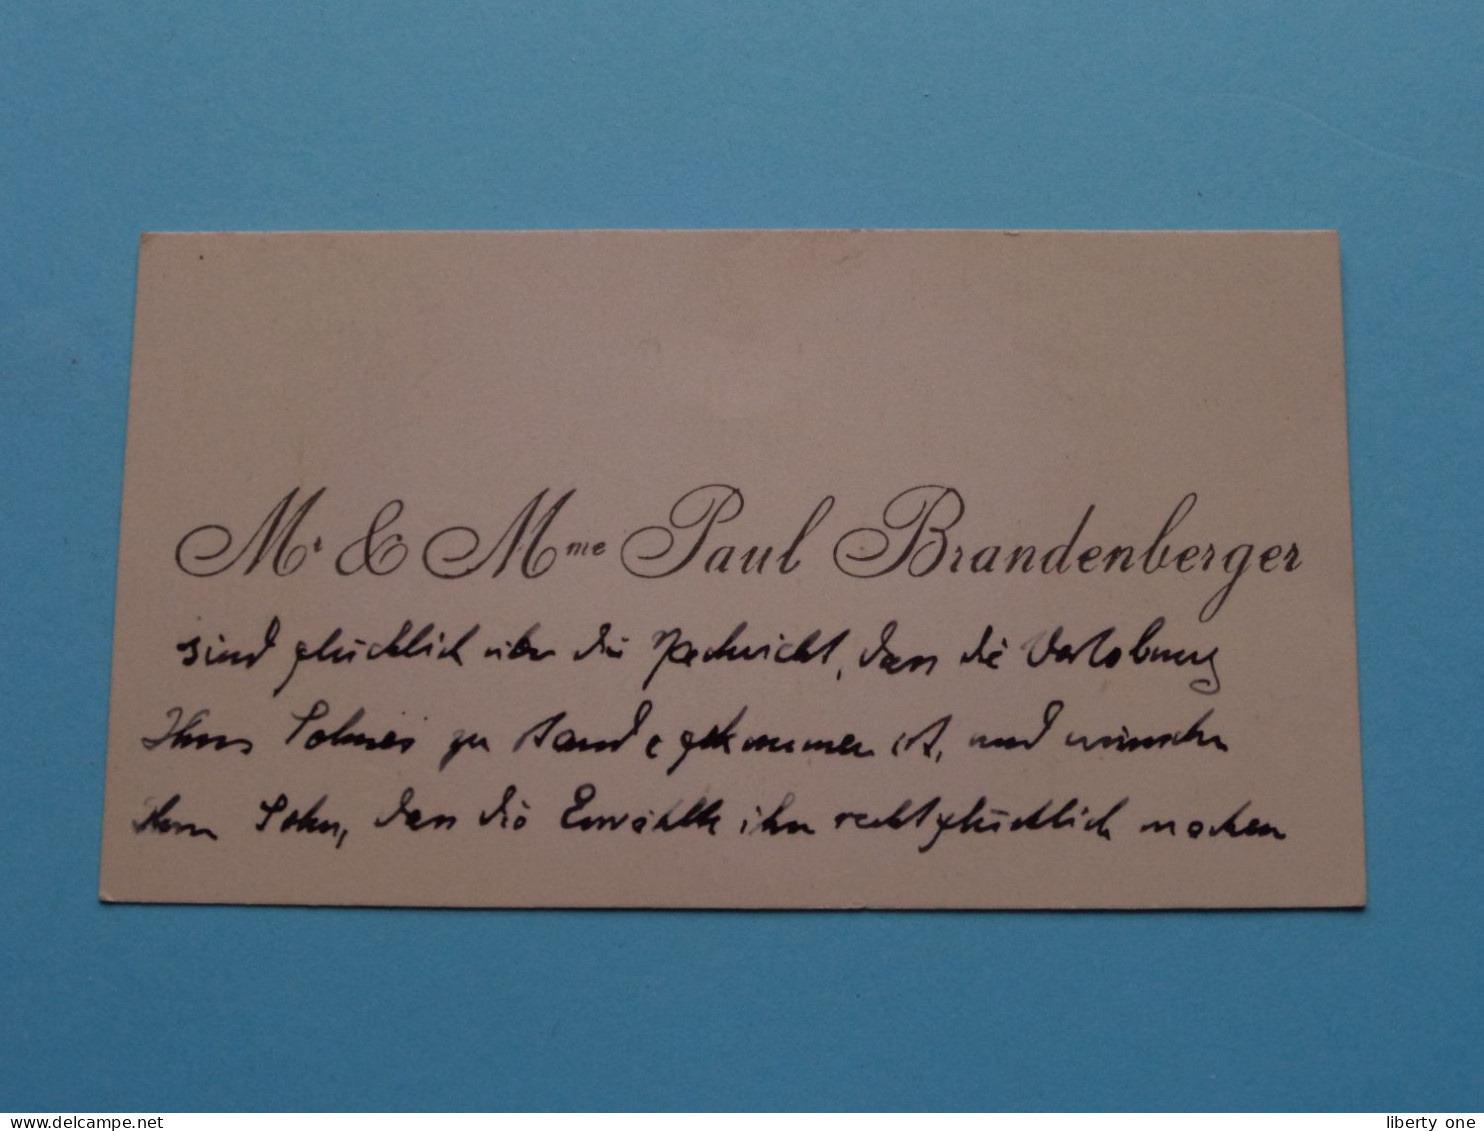 Mr & Mme Paul Brandenberger
sind glücklich über die Nachricht, dass die Verlobung
Ihres Sohnes zu stande gekommen ist, und wünschen
Ihrem Sohn, dass die Erwählte ihn recht glücklich machen
delcampe.net
liberty one